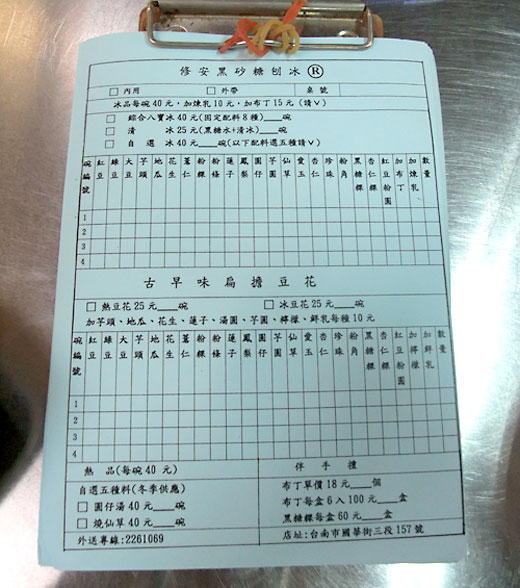 修安黑砂糖刨冰®
□ 內用 □ 外帶 桌號
冰品每碗40元，加煉乳10元，加布丁15元（請V）
□ 綜合八寶冰40元(固定配料8種)____碗
□ 清 冰25元(黑糖水+清冰)____碗
□ 自 選 冰40元____碗(以下配料選五種請V)
碗編號 紅豆 綠豆 大豆 芋頭 地瓜 花生 薏仁 粉粿 粉條 蓮子 鳳梨 圓仔 芋圓 仙草 愛玉 杏仁 珍珠 粉角 黑糖粿 杏仁粿 紅豆粉圓 加布丁 加煉乳 數量
1
2
3
4
古早味扁擔豆花
□ 熱豆花25元____碗 □ 冰豆花25元____碗
加芋頭、地瓜、花生、蓮子、湯圓、芋圓、檸檬、鮮乳每種10元
碗編號 紅豆 綠豆 大豆 芋頭 地瓜 花生 薏仁 粉粿 粉條 蓮子 鳳梨 圓仔 芋圓 仙草 愛玉 杏仁 珍珠 粉角 黑糖粿 杏仁粿 紅豆粉圓 加檸檬 加鮮乳 數量
1
2
3
4
熱 品(每碗40元)
自選五種料(冬季供應)
□ 圓仔湯40元____碗
□ 燒仙草40元____碗
外送專線:2261069
伴手禮
布丁單價18元____個
布丁每盒6入100元____盒
黑糖粿每盒60元____盒
店址:台南市國華街三段157號